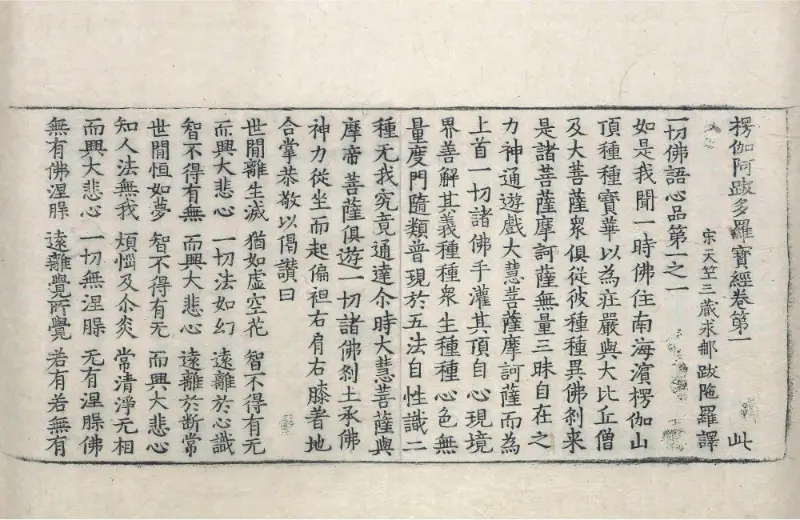 楞伽阿跋多羅寶經卷第一 此
宋天竺三藏求那跋陁羅譯
一切佛語心品第一之一
如是我聞一時佛住南海濱楞伽山
頂種種寶華以為莊嚴與大比丘僧
及大菩薩衆俱從彼種種異佛刹来
是諸菩薩摩訶薩無量三昧自在之
力神通遊戲大慧菩薩摩訶薩而為
上首一切諸佛手灌其頂自心現境
界善解其義種種衆生種種心色無
量度門隨類普現於五法自性識二
種无我究竟通達尒時大慧菩薩與
摩帝菩薩俱遊一切諸佛刹土承佛
神力從坐而起偏袒右肩右膝著地
合掌恭敬以偈讚曰
世間離生滅 猶如虛空花 智不得有无
而興大悲心 一切法如幻 遠離於心識
智不得有無 而興大悲心 遠離於断常
世間恒如夢 智不得有无 而興大悲心
知人法無我 煩惱及尒炎 常清淨无相
而興大悲心 一切無涅槃 无有涅槃佛
無有佛涅槃 遠離覺所覺 若有若無有